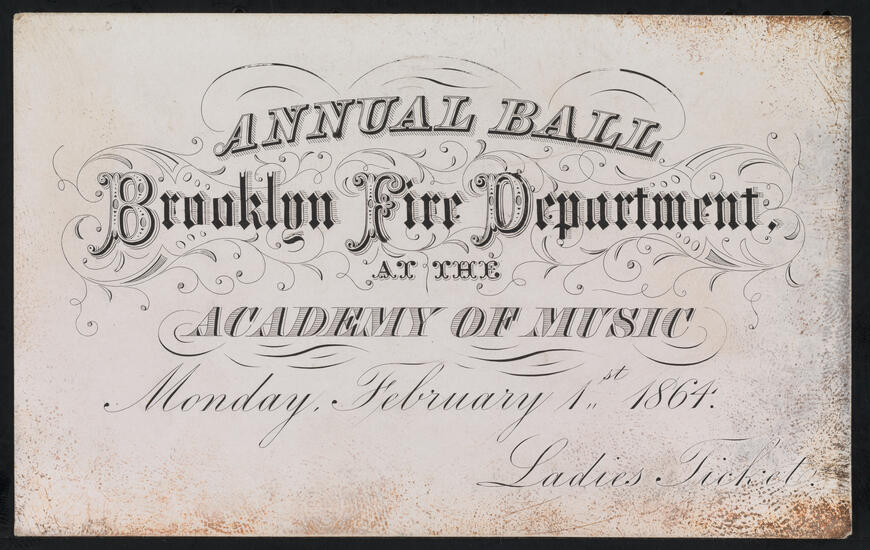 ANNUAL BALL
Brooklyn Fire Department,
AT THE
ACADEMY OF MUSIC
Monday, February 1st 1864.
Ladies Ticket.